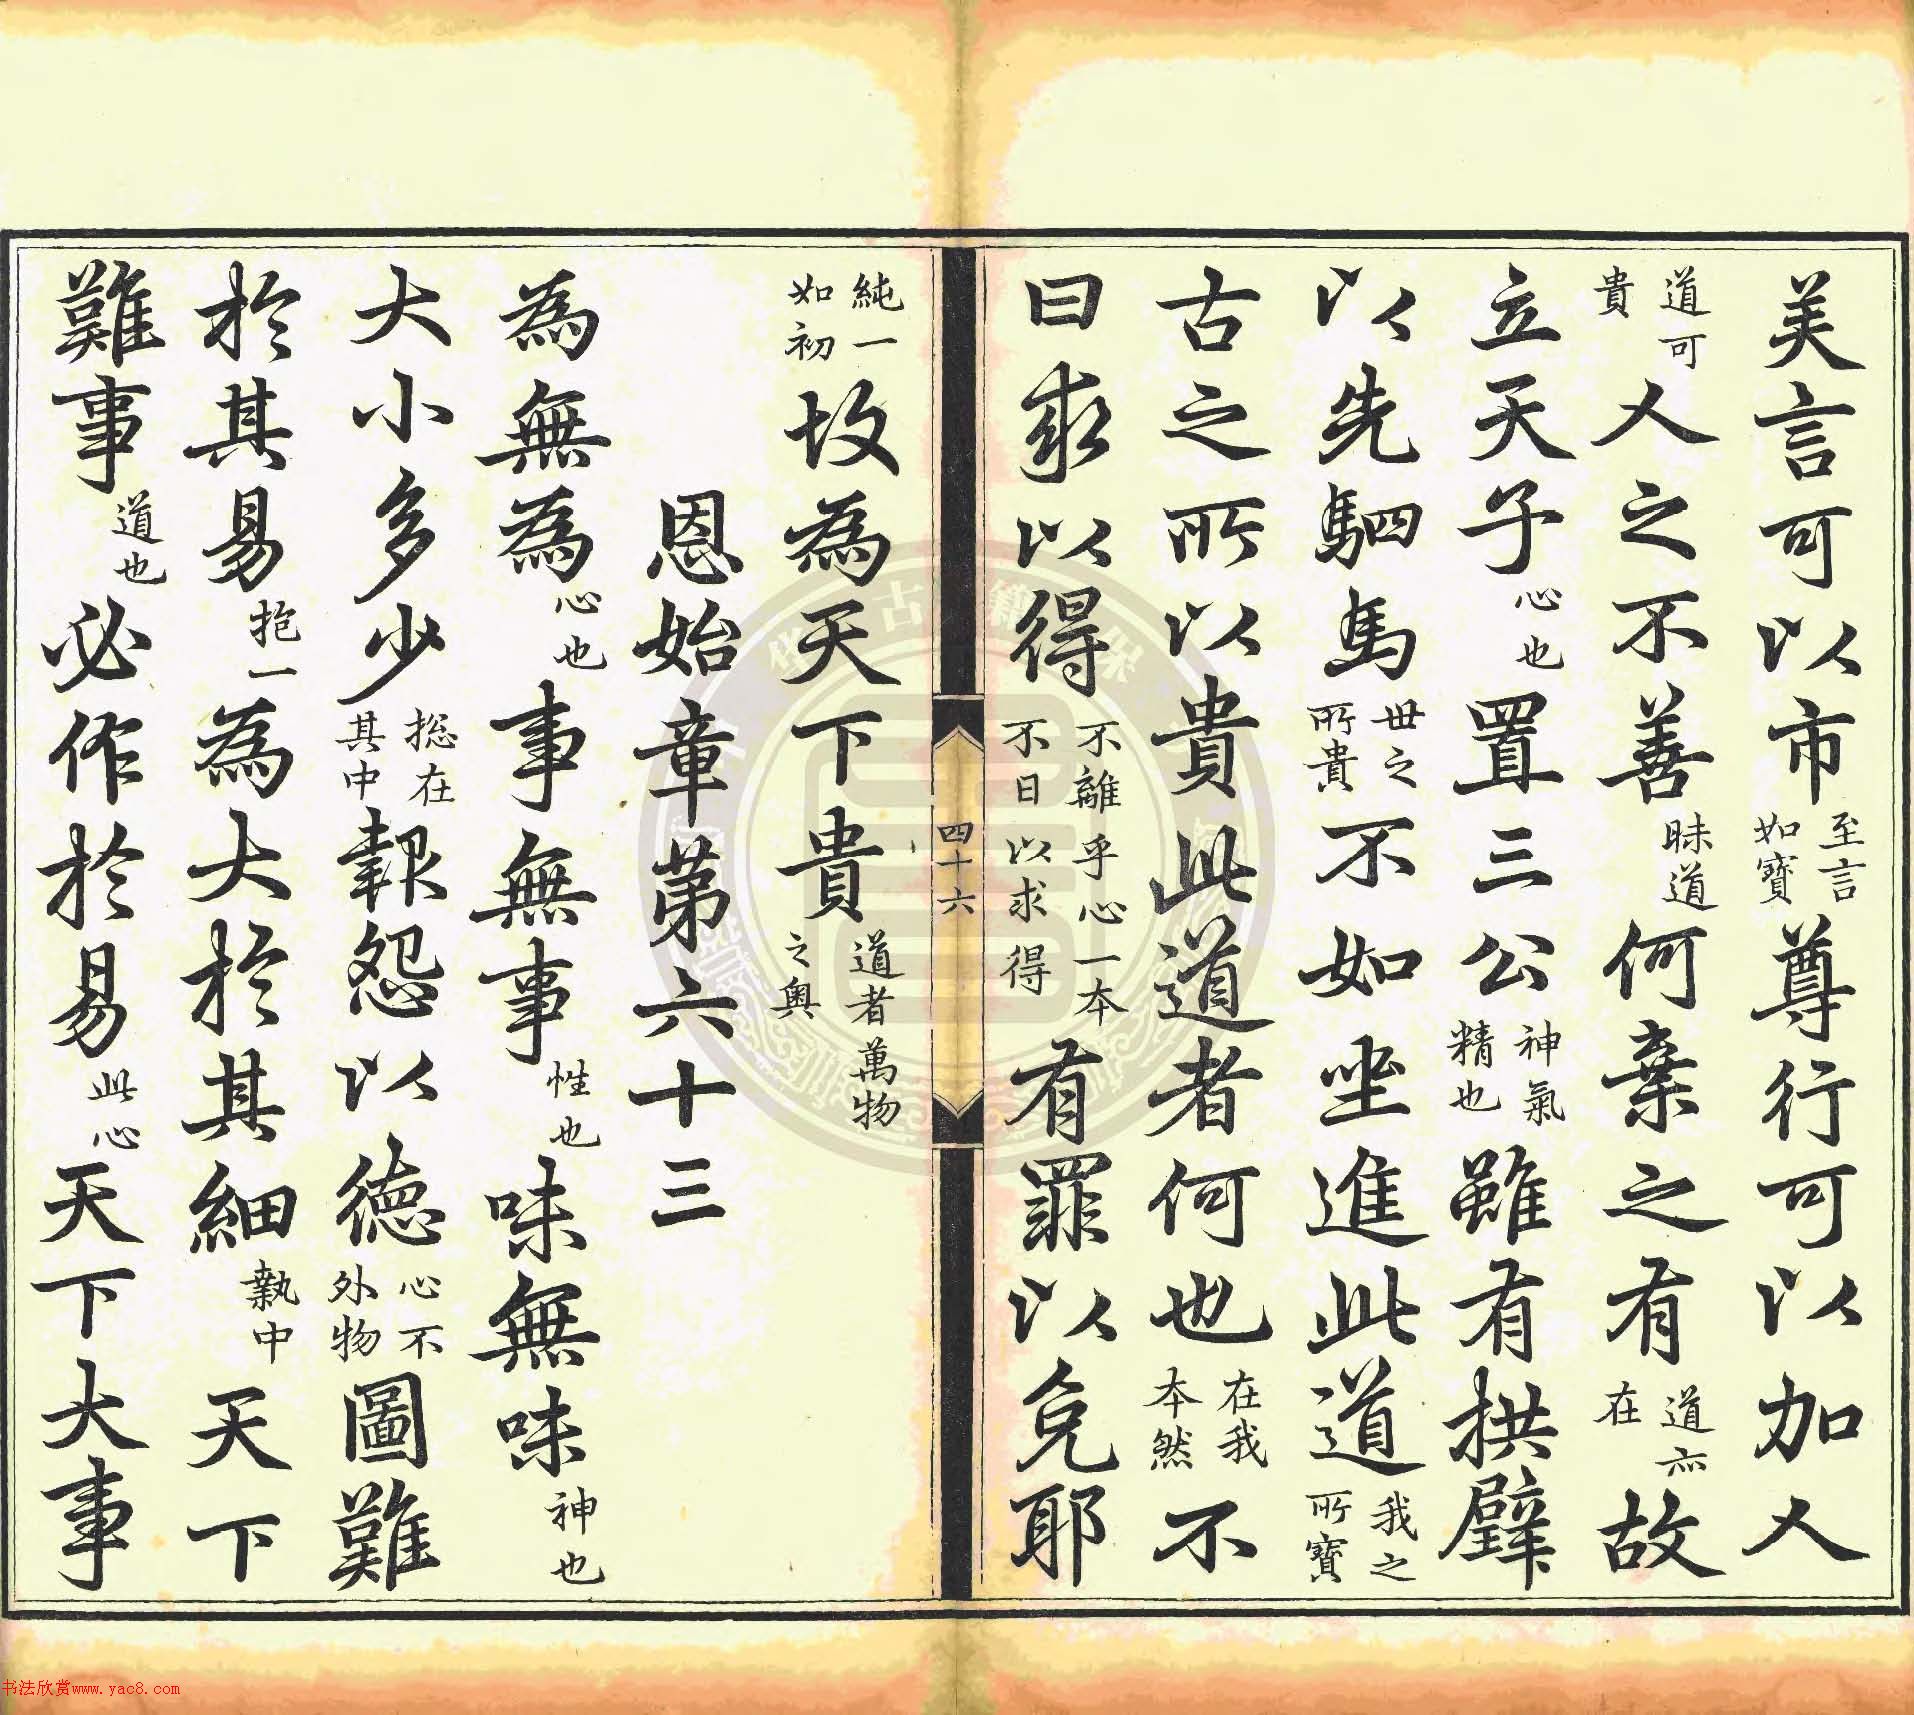 美言可以市至言如寶尊行可以加人
道可貴人之不善昧道何棄之有道亦在故
立天子心也置三公神氣精也雖有拱璧
以先駟馬世之所貴不如坐進此道我之所寶
古之所以貴此道者何也在我本然不
曰求以得不離乎心一本不日以求得有罪以免耶
四十六
純一如初故為天下貴道者萬物之奧
恩始章第六十三
為無為心也事無事性也味無味神也
大小多少捴在其中報怨以德心不外物圖難
於其易抱一為大於其細執中天下
難事道也必作於易此心天下大事
书法欣赏www.yac8.com